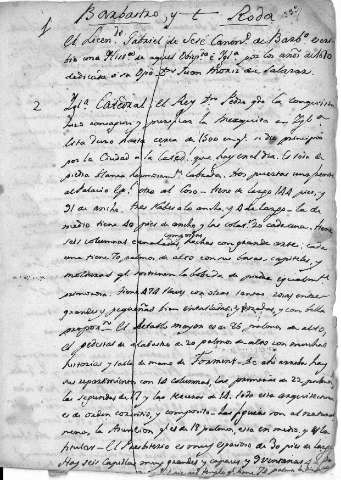 Barbastro, y t Roda
1 El Licen.do Gabriel de Sesé Canon.o de Barb.o escri-
bio una Hist.a de aquel Obisp.o e Igl.a por los años de 1610
dedicada a su Opõ D.n Juan Moriz de Salazar.
2 Igl.a Catedral. El Rey D.n Pedro q.e la conquistó
hizo consagrar y purificar la Mezquita en Igl.a
Esta duró hasta cerca de 1500 en q.e se dio principio
por la Ciudad a la Catedral que hay en el dia. Es toda de
piedra blanca hermosam.te labrada. Dos puertas una frente
al Palacio Ep.l otra al Coro = tiene de largo 144 pies, y
91 de ancho, tres Naves a lo ancho, y 4 a lo largo = la de
medio tiene 40 pies de ancho y las colat.s 20 cada una. tiene
seis columnas canaladas, hechas con grande arte: cada
una tiene 70 palmos de alto con sus basas, capiteles, y
molduras q.e sostienen la bobeda de piedra igualm.te
primorosa: tiene 474 llaves con otras tantas rosas entre
grandes y pequeñas bien entalladas, y doradas, y con bella
proporn = El Retablo mayor es de 76 palmos de alto,
el pedestal de alabastro de 20 palmos de alto con muchas
historias y talla de mano de Forment = de ahi arriba hay
tres repartimientos con 10 columnas, las primeras de 22 palmos,
las segundas de 17 y las terceras de 14. todo esta arquitectura
es de orden corintio, y composito = las figuras son al natural
menos la Asuncion q.e es de 18 palmos, esta en medio, y es la
titular = El Presbiterio es muy espacioso de 30 pies de largo
Hay seis Capillas muy grandes y capaces y 9 ventanas